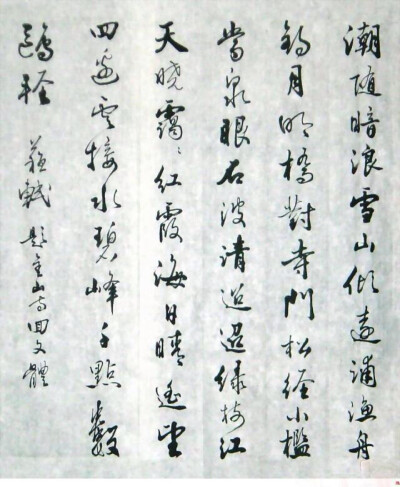 潮隨暗浪雪山傾遠浦漁舟
釣月明橋對寺門松徑小檻
當泉眼石波清迢迢綠樹江
天曉靄々紅霞海日晴遙望
四邊雲接水碧峰千點數
鷗輕 蘇軾 題金山寺回文體